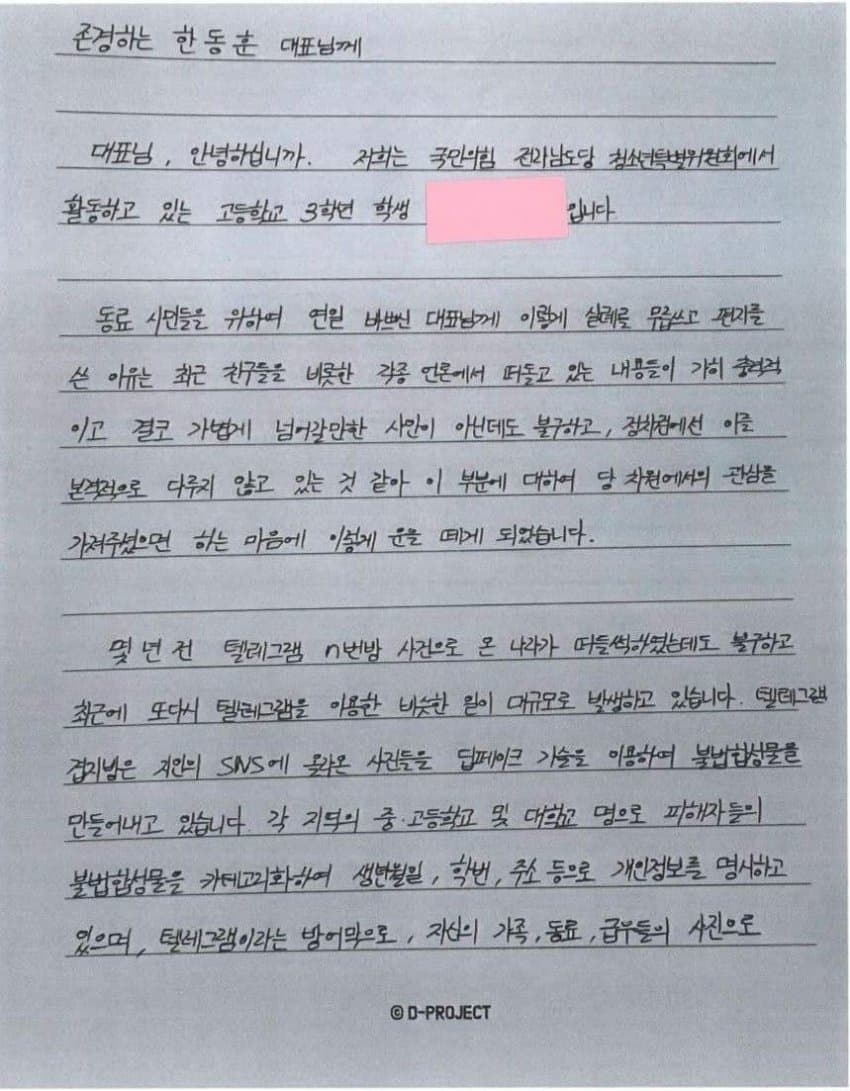 존경하는 한동훈 대표님께
대표님, 안녕하십니까. 저희는 국민의힘 전라남도당 청소년특별위원회에서
활동하고 있는 고등학교 3학년 학생 입니다.
동료 시민들을 위하여 연일 바쁘신 대표님께 이렇게 실례를 무릅쓰고 편지를
쓴 이유는 최근 친구들을 비롯한 각종 언론에서 떠돌고 있는 내용들이 가히 충격적
이고 결코 가볍게 넘어갈만한 사안이 아닌데도 불구하고, 정치권에선 이를
본격적으로 다루지 않고 있는 것 같아 이 부분에 대하여 당 차원에서의 관심을
가져주셨으면 하는 마음에 이렇게 운을 떼게 되었습니다.
몇 년 전 텔레그램 n번방 사건으로 온 나라가 떠들썩하였는데도 불구하고
최근에 또다시 텔레그램을 이용한 비슷한 일이 대규모로 발생하고 있습니다. 텔레그램
겹지방은 지인의 SNS에 올라온 사진들을 딥페이크 기술을 이용하여 불법합성물을
만들어내고 있습니다. 각 지역의 중·고등학교 및 대학교 명으로 피해자들의
불법합성물을 카테고리화하여 생년월일, 학번, 주소 등으로 개인정보를 명시하고
있으며, 텔레그램이라는 방어막으로, 자신의 가족, 동료, 급우들의 사진으로
© D-PROJECT